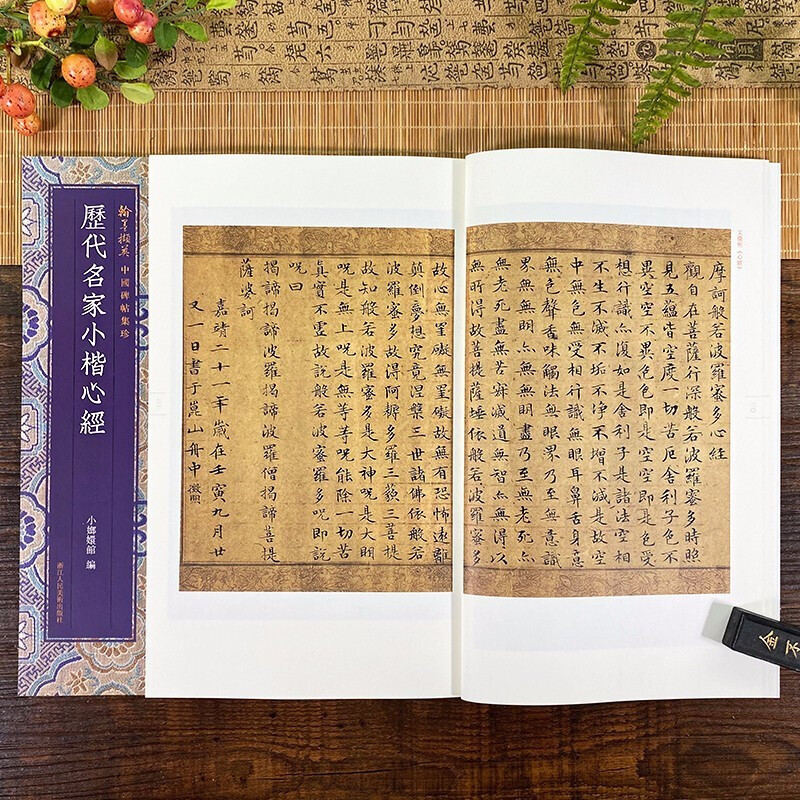 翰墨擷英 中國碑帖集珍
歷代名家小楷心經
小嫏嬛館 編
浙江人民美術出版社
摩訶般若波羅蜜多心經
觀自在菩薩行深般若波羅蜜多時照
見五蘊皆空度一切苦厄舍利子色不
異空空不異色色即是空空即是色受
想行識亦復如是舍利子是諸法空相
不生不滅不垢不淨不增不減是故空
中無色無受相行識無眼耳鼻舌身意
無色聲香味觸法無眼界乃至無意識
界無無明亦無無明盡乃至無老死亦
無老死盡無苦集滅道無智亦無得以
無所得故菩提薩埵依般若波羅蜜多
故心無罣礙無罣礙故無有恐怖遠離
顛倒夢想究竟涅槃三世諸佛依般若
波羅蜜多故得阿耨多羅三藐三菩提
故知般若波羅蜜多是大神呪是大明
呪是無上呪是無等等呪能除一切苦
真實不虛故說般若波羅蜜多呪即說
呪曰
揭諦揭諦波羅揭諦波羅僧揭諦菩提
薩婆訶
嘉靖二十一年歲在壬寅九月廿
又一日書于崑山舟中 徵明
金不